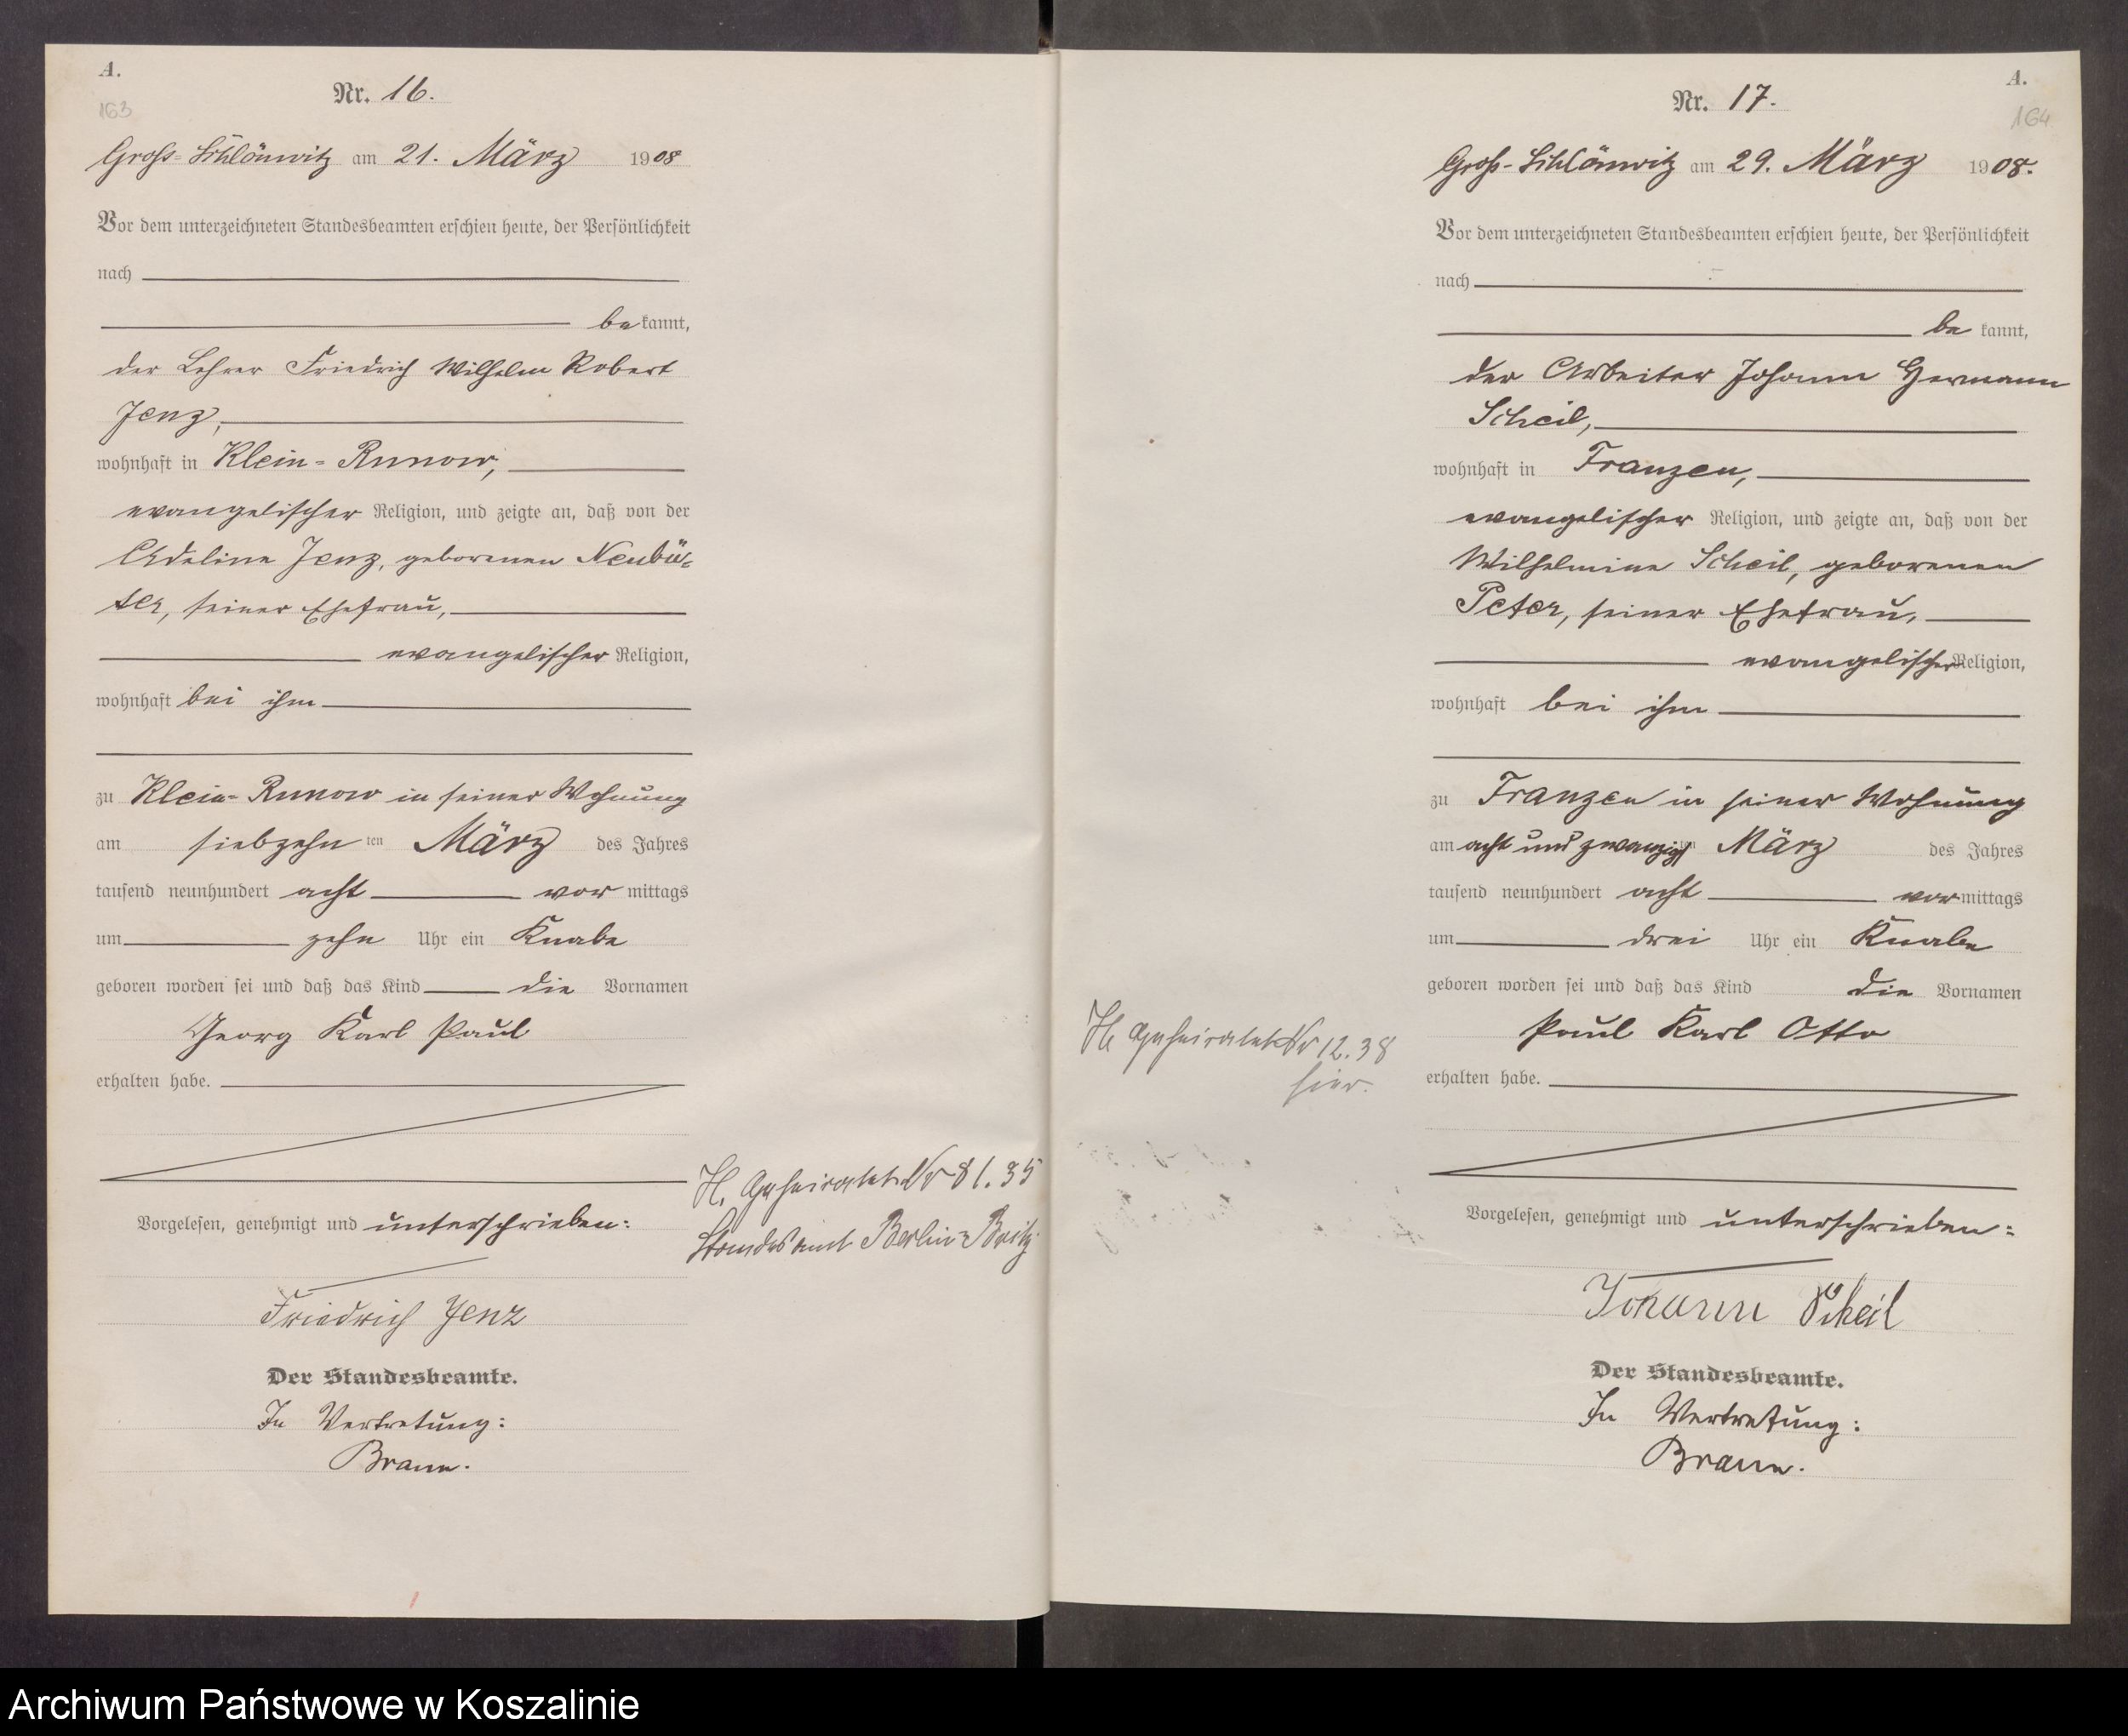 A.
163
Nr. 16.
Groß-Schlönwitz am 21. März 1908
Vor dem unterzeichneten Standesbeamten erschien heute, der Persönlichkeit
nach
bekannt,
der Lehrer Friedrich Wilhelm Robert
Jenz,
wohnhaft in Klein-Runow,
evangelischer Religion, und zeigte an, daß von der
Adeline Jenz, geborenen Neubü=
ser, seiner Ehefrau,
evangelischer Religion,
wohnhaft bei ihm
zu Klein-Runow in seiner Wohnung
am siebzehnten März des Jahres
tausend neunhundert acht vormittags
um zehn Uhr ein Knabe
geboren worden sei und daß das Kind die Vornamen
Georg Karl Paul
erhalten habe.
Vorgelesen, genehmigt und unterschrieben:
Friedrich Jenz
Der Standesbeamte.
In Vertretung:
Braun.
H. Geheiratet Nr 81.35
Standesamt Berlin-Britz
A.
164
Nr. 17.
Groß-Schlönwitz am 29. März 1908.
Vor dem unterzeichneten Standesbeamten erschien heute, der Persönlichkeit
nach
bekannt,
der Arbeiter Johann Hermann
Scheil,
wohnhaft in Franzen,
evangelischer Religion, und zeigte an, daß von der
Wilhelmine Scheil, geborenen
Peter, seiner Ehefrau,
evangelischer Religion,
wohnhaft bei ihm
zu Franzen in seiner Wohnung
am acht und zwanzigsten März des Jahres
tausend neunhundert acht vormittags
um drei Uhr ein Knabe
geboren worden sei und daß das Kind die Vornamen
Paul Karl Otto
erhalten habe.
H Geheiratet Nr 12.38
hier.
Vorgelesen, genehmigt und unterschrieben:
Johann Scheil
Der Standesbeamte.
In Vertretung:
Braun.
Archiwum Państwowe w Koszalinie